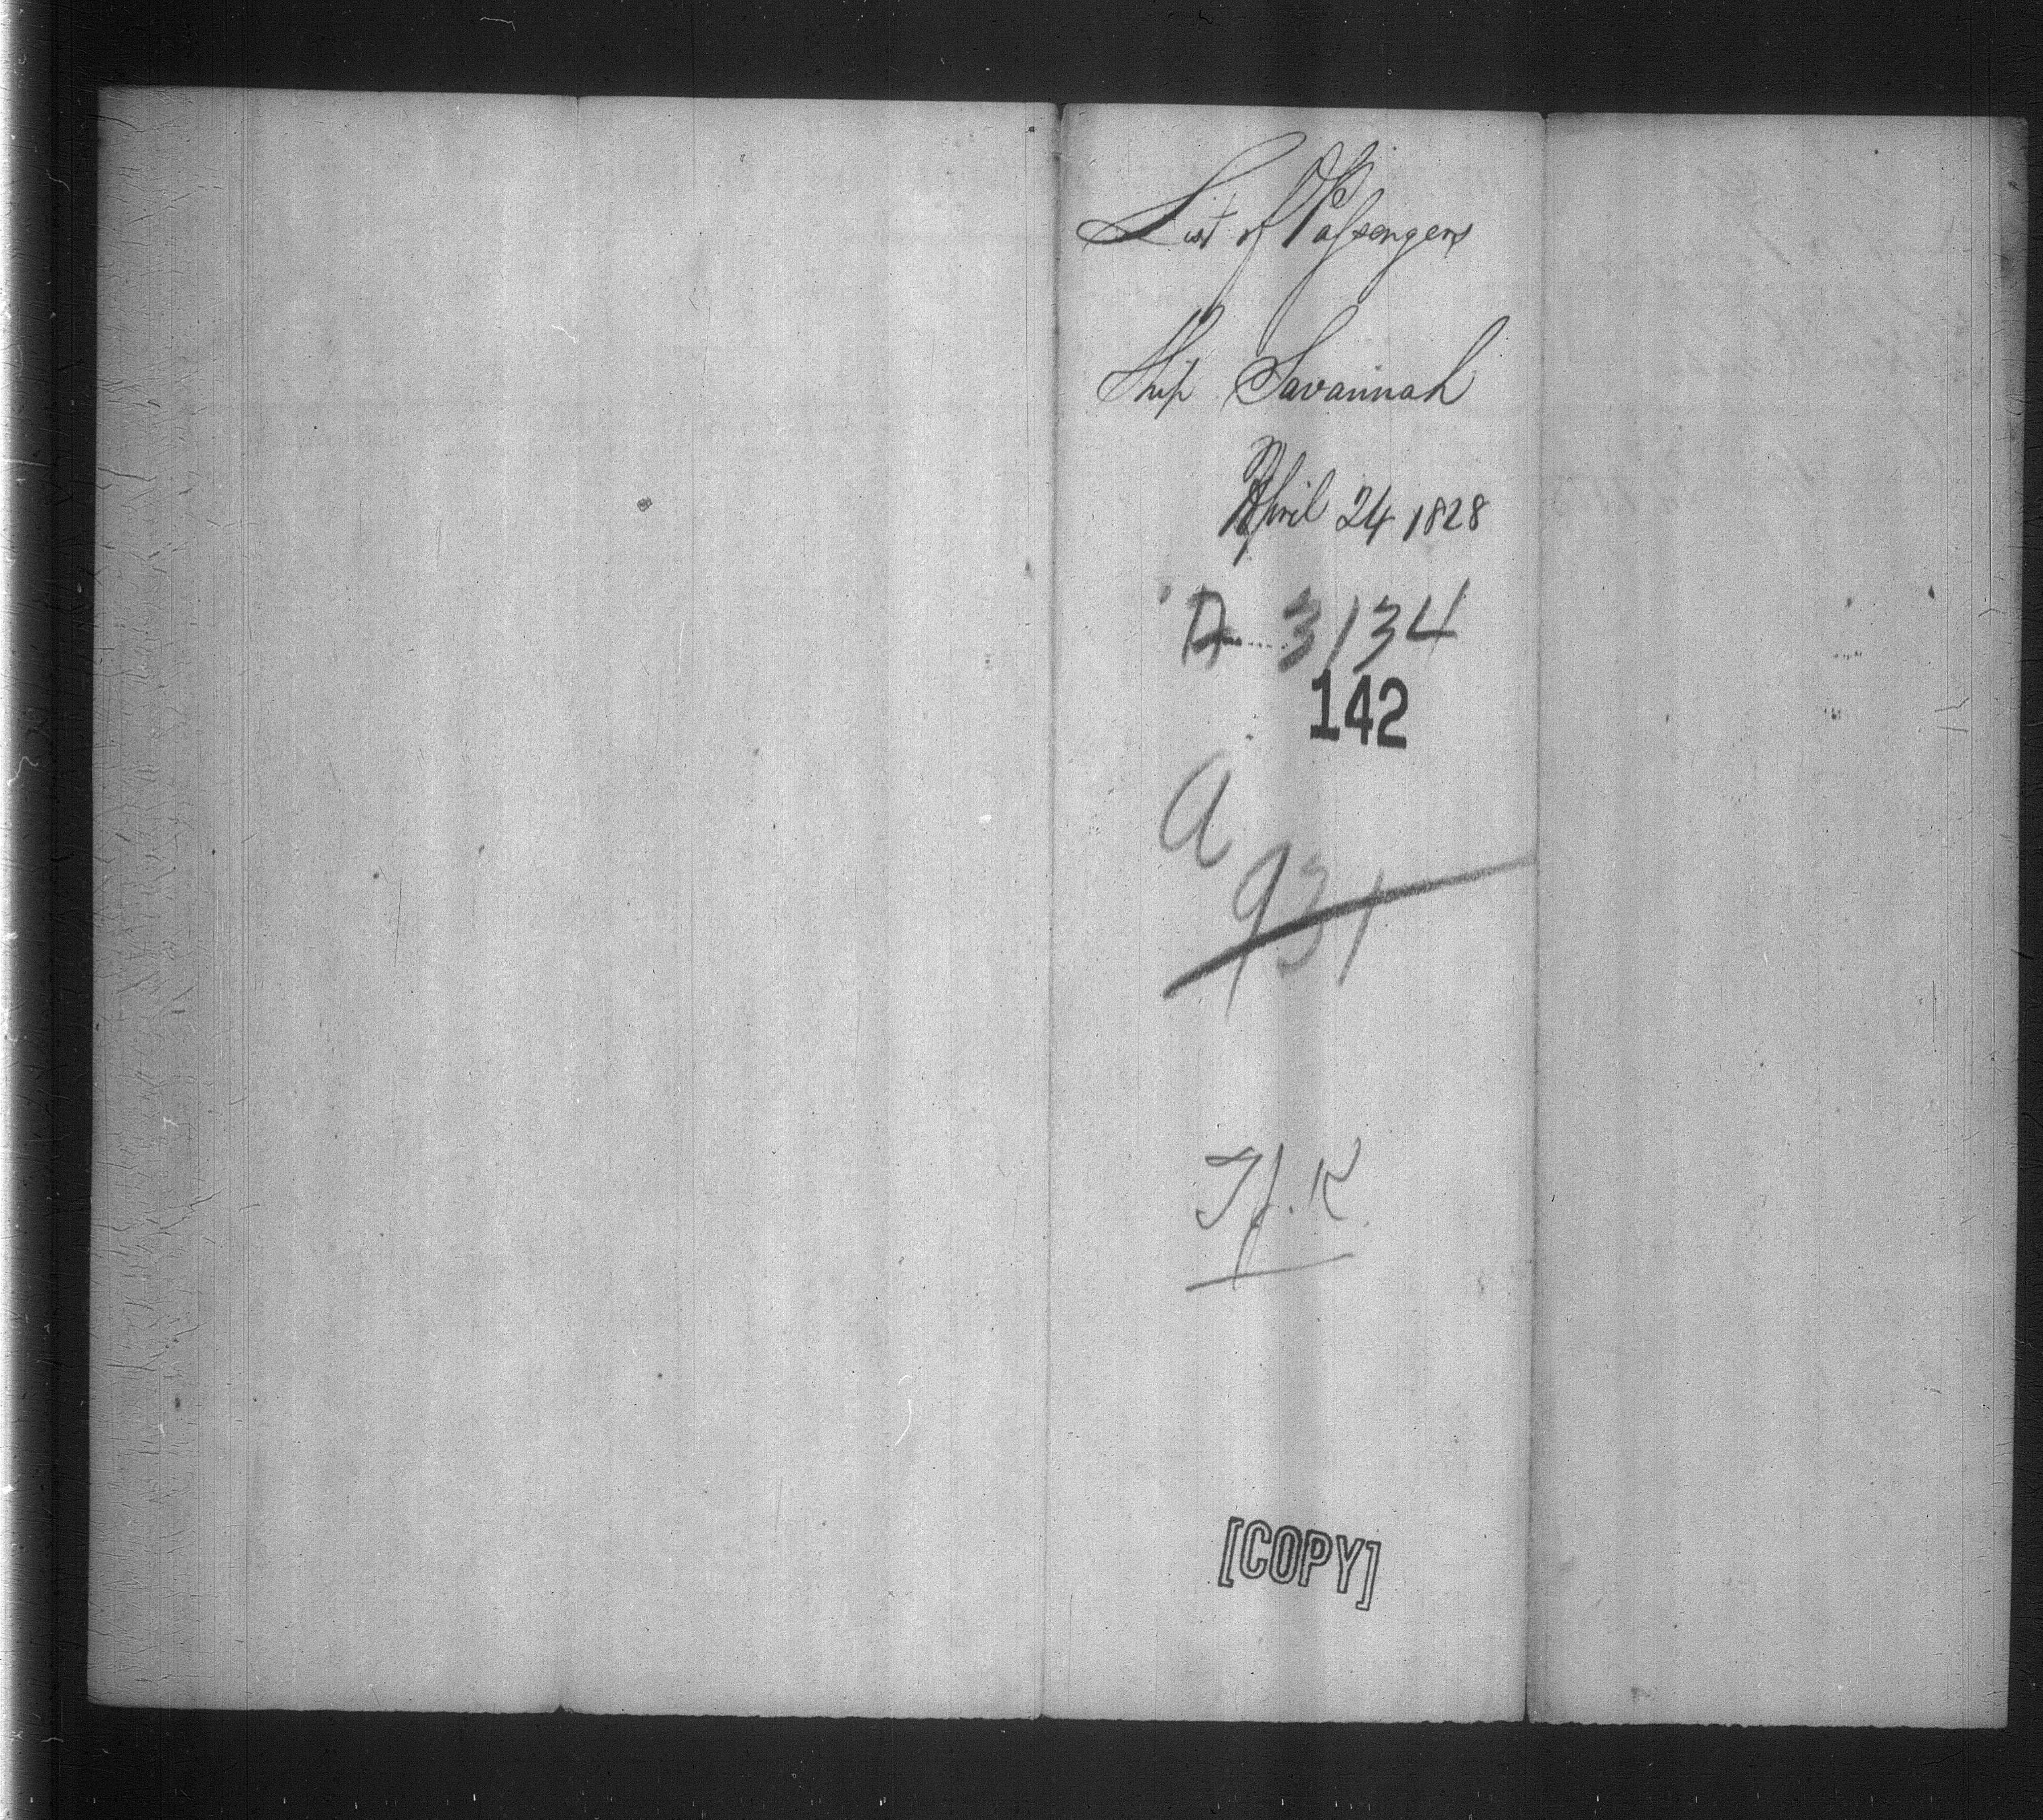 List of Passengers
Ship Savannah
April 24 1828
A 3134
142
a
931
[COPY]